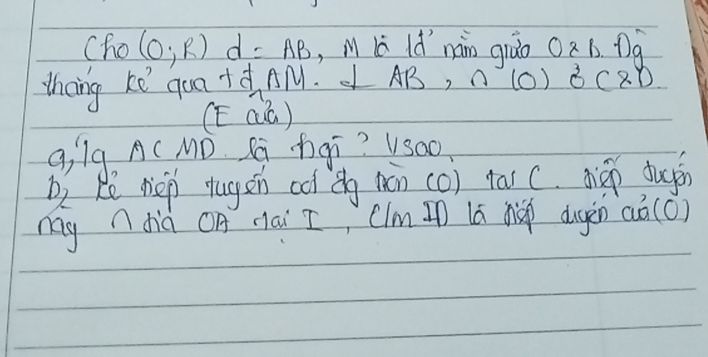 Cho (O; R) d = AB, M là 1đ' nằm giữa O & B. Đg
thẳng kẻ qua tđ AM. ⊥ AB, ∩ (O) ở C & D.
(E của)
a, Tg ACMD. là hgì? Vsao.
b, Kẻ tiếp tuyến với đg tròn (O) tại C. tiếp tuyến
này ∩ tia OA tại I, C/m ID là tiếp tuyến của (O)